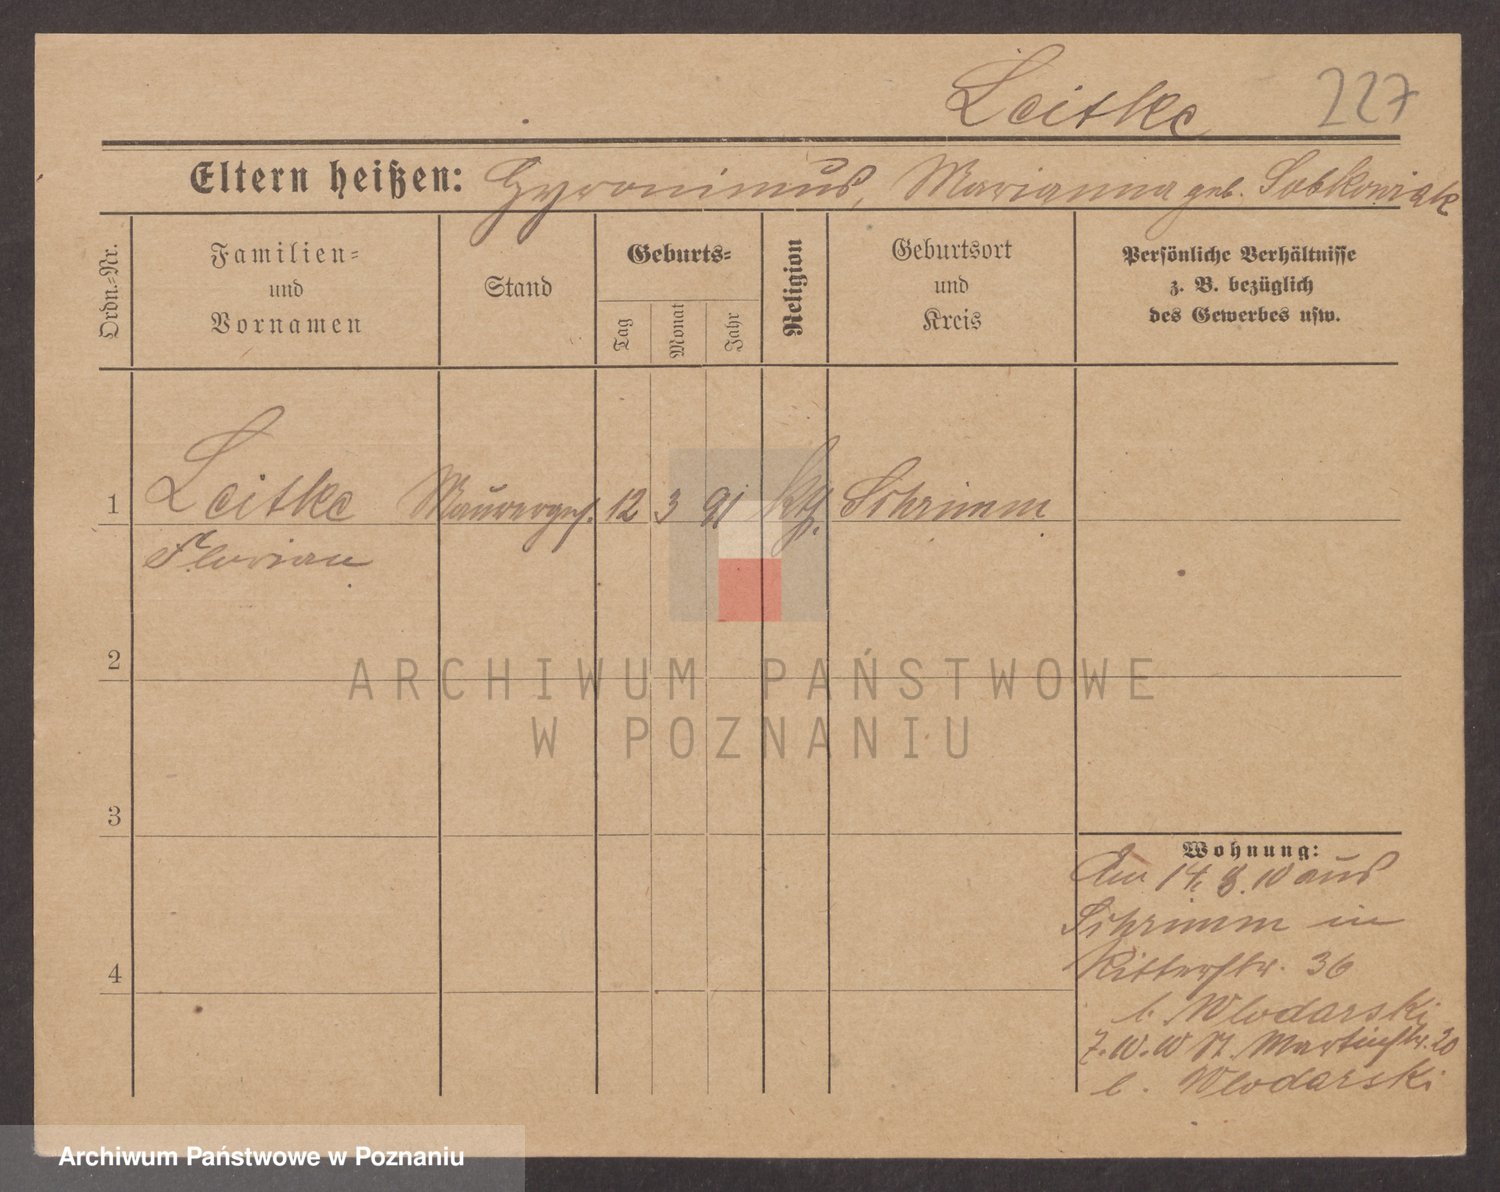 Leitke 227
Eltern heißen: Hyronimus, Marianna geb. Sobkowiak
Ordn.-Nr.
Familien-
und
Vornamen
Stand
Geburts-
Tag
Monat
Jahr
Religion
Geburtsort
und
Kreis
Persönliche Verhältnisse
z. B. bezüglich
des Gewerbes usw.
1 Leitke Maurerges. 12 3 91 kth. Schrimm
Florian
2
ARCHIWUM PAŃSTWOWE
W POZNANIU
3
4
Wohnung:
Am 14. 8. 10 aus
Schrimm in
Ritterstr. 36
b. Wlodarski
7. 10. 10 St. Martinstr. 20
b. Wlodarski
Archiwum Państwowe w Poznaniu